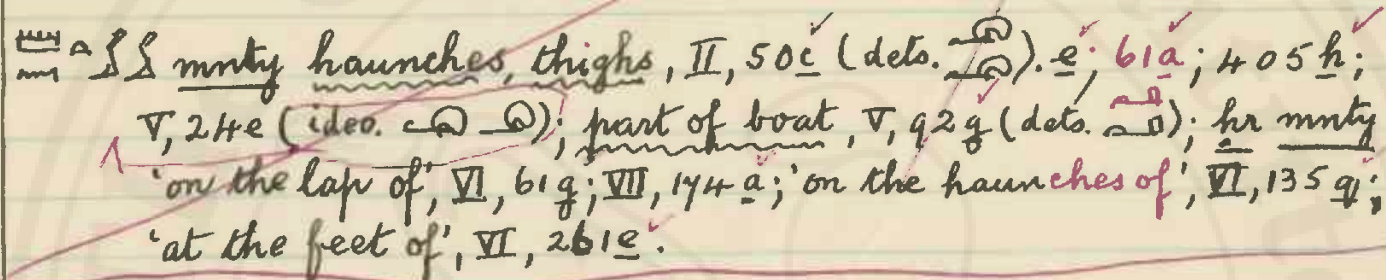 𓏠𓈖𓏏𓂾𓂾 mnty haunches, thighs, II, 50c (dets. ). e; 61a; 405h;
V, 24e (ideo. ); part of boat, V, 92g (dets. ); hr mnty
'on the lap of', VI, 61g; VII, 174a; 'on the haunches of', VI, 135q;
'at the feet of', VI, 261e.